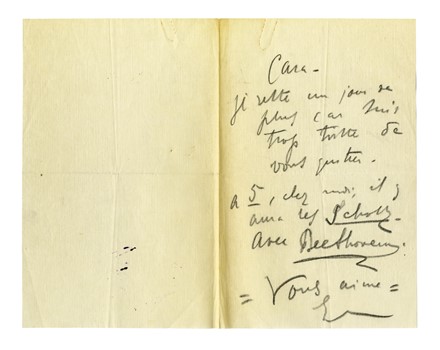 Cara -
je reste un jour de
plus car suis
trop triste de
vous quitter.
a 5, chez moi, il y
aura les Scholz
avec Beethoven.
= Vous aime =